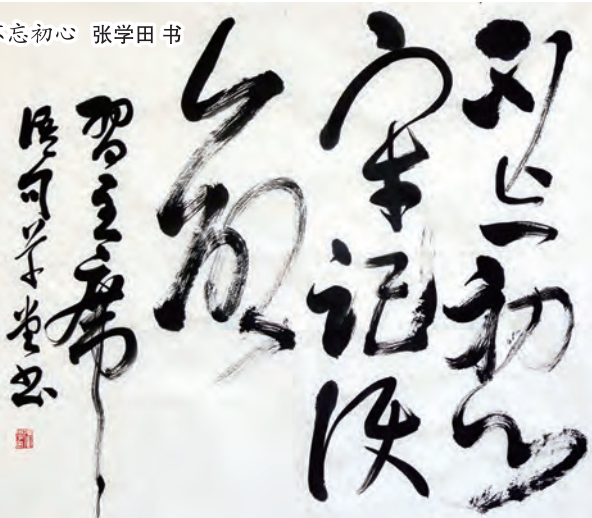 不忘初心 张学田 书
不忘初心
牢记使
命
習主席
语句草堂书